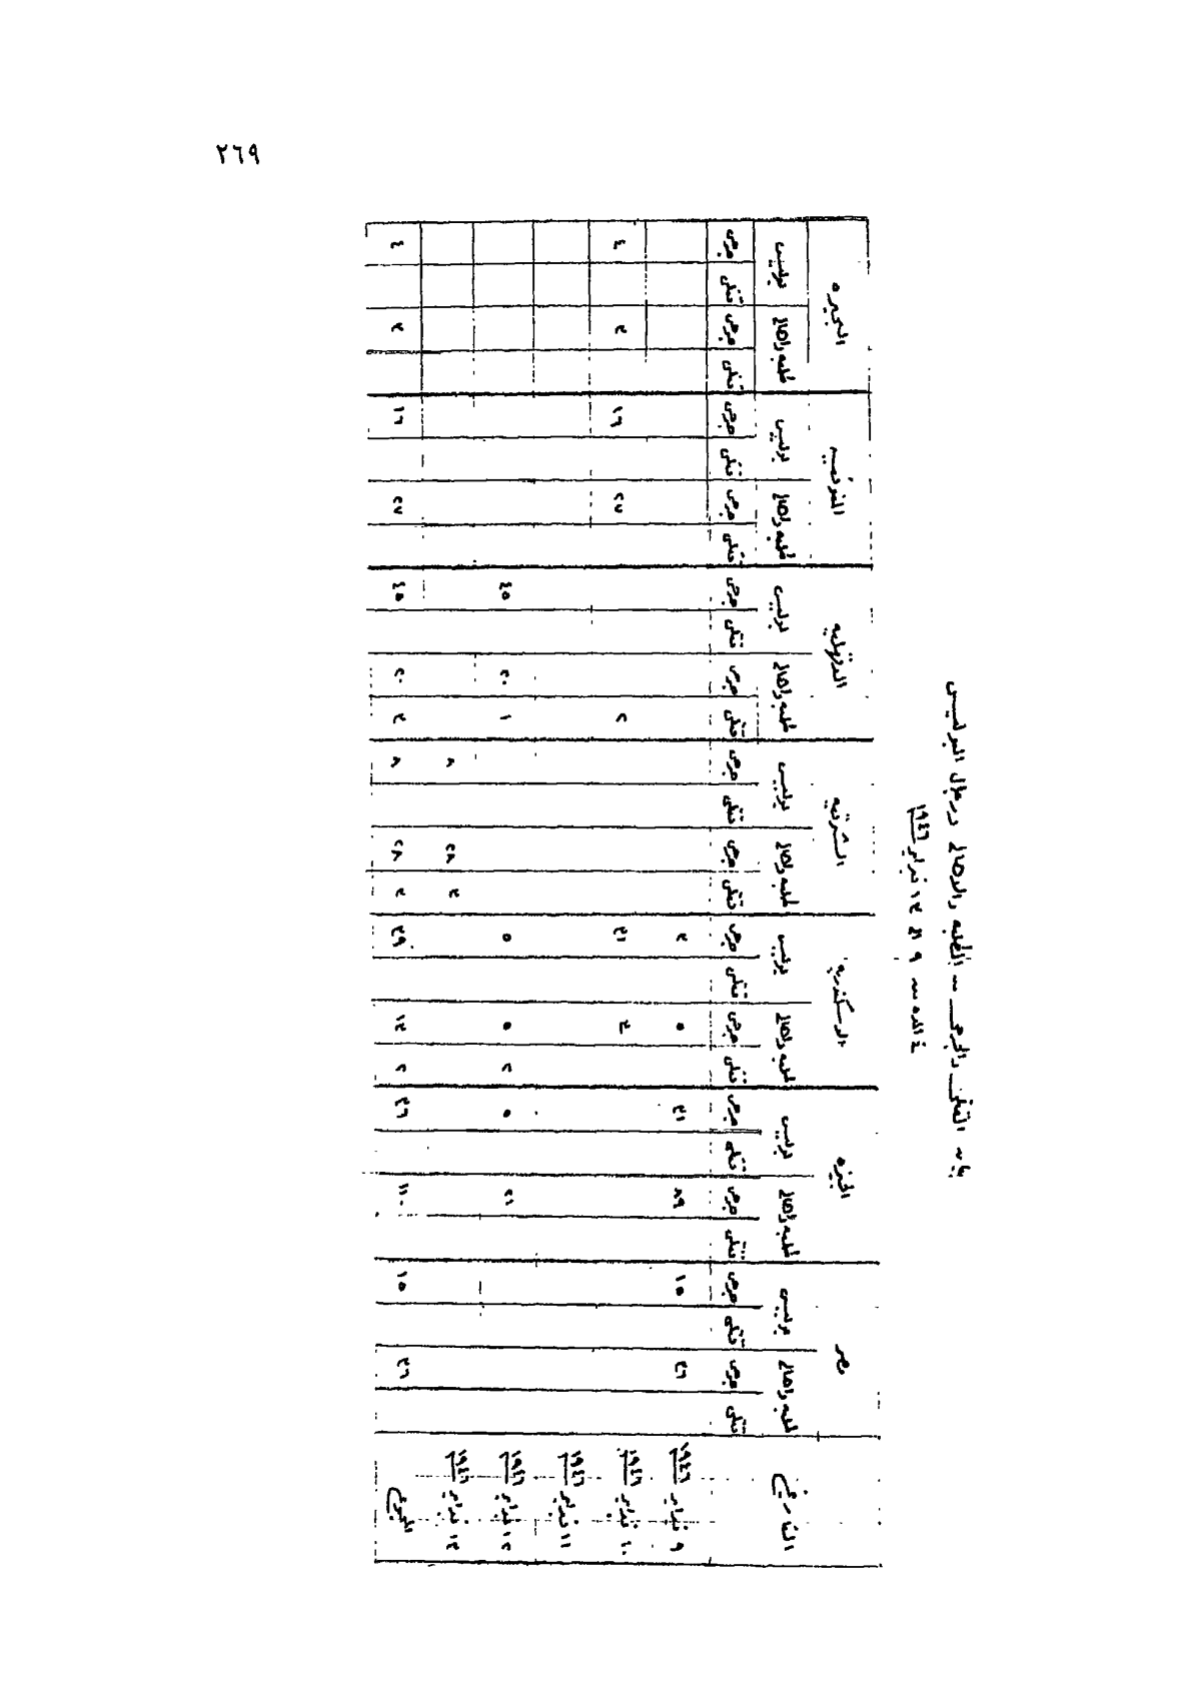 ٢٦٩
بيان القتلى والجرحى من الطلبه والاهالى ورجال البوليس
فى المده من ٩ الى ١٣ فبراير ١٩٤٦
التاريخ مصر الجيزه الاسكندريه الشرقيه الدقهليه المنوفيه البحيره
طلبه واهالى بوليس طلبه واهالى بوليس طلبه واهالى بوليس طلبه واهالى بوليس طلبه واهالى بوليس طلبه واهالى بوليس طلبه واهالى بوليس
قتلى جرحى قتلى جرحى قتلى جرحى قتلى جرحى قتلى جرحى قتلى جرحى قتلى جرحى قتلى جرحى قتلى جرحى قتلى جرحى قتلى جرحى قتلى جرحى قتلى جرحى قتلى جرحى
٩ فبراير ١٩٤٦ ٣٦ ١٥ ٨٩ ٣١ ٥ ٣
١٠ فبراير ١٩٤٦ ٣ ٣١ ٢ ٢٧ ١٦ ٣ ٤
١١ فبراير ١٩٤٦
١٢ فبراير ١٩٤٦ ٢١ ٥ ٢ ٥ ٥ ١ ٢٠ ٤٥
١٣ فبراير ١٩٤٦ ٣ ٢٨ ٨
المجموع ٣٦ ١٥ ١١٠ ٣٦ ٢ ١٣ ٣٩ ٣ ٢٨ ٨ ٣ ٢٠ ٤٥ ٢٧ ١٦ ٣ ٤